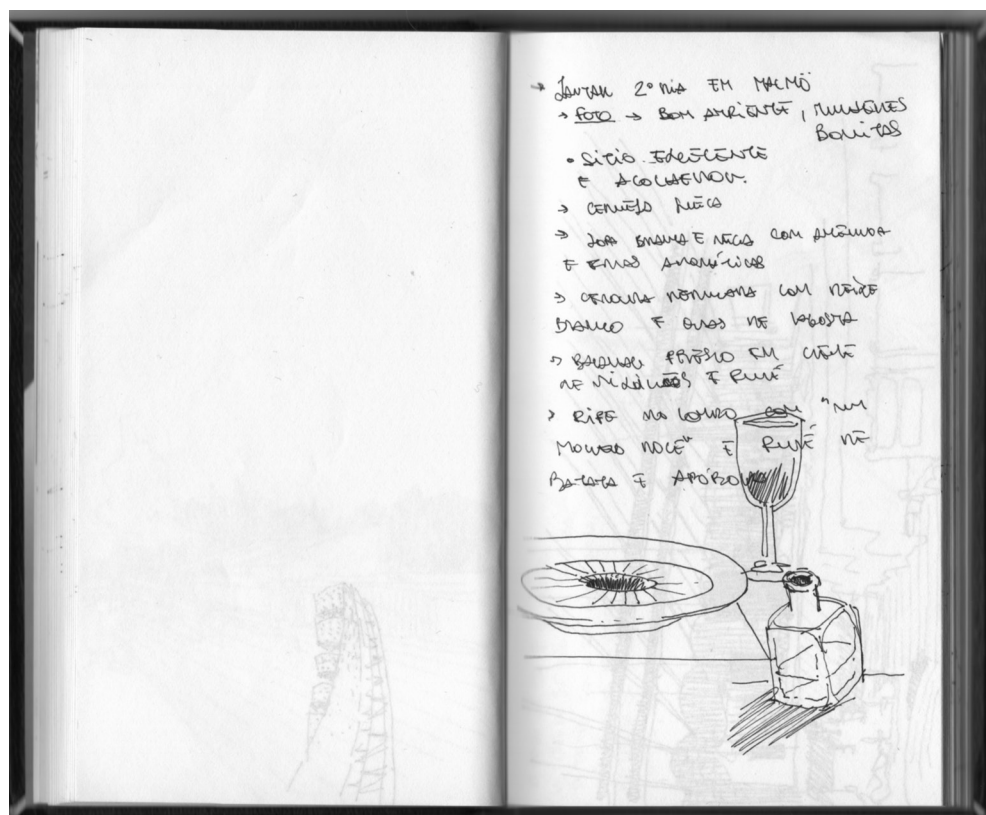 → JANTAR 2º DIA EM MALMÖ
→ FOTO → BOM AMBIENTE, MULHERES
BONITAS
• SITIO EXCELENTE
E ACOLHEDOR.
→ CERVEJA
→ SOPA BRANCA E COM AMÊNDOA
E ERVAS AROMÁTICAS
→ CENOURA COM PEIXE
BRANCO E OVAS DE LAGOSTA
→ BACALHAU FRESCO EM CREME
DE E PURÉ
→ BIFE DO LOMBO COM "UM
MOLHO DOCE" E PURÉ DE
BATATA E ABÓBORA